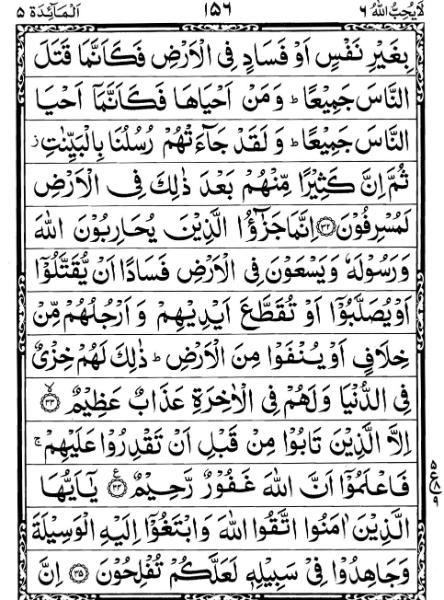 لَايُحِبُّ اللهُ ٦ ١٥٦ اَلْمَآئِدَة ٥
بِغَيْرِ نَفْسٍ اَوْ فَسَادٍ فِى الْاَرْضِ فَكَاَنَّمَا قَتَلَ
النَّاسَ جَمِيْعًا ؕ وَ مَنْ اَحْيَاهَا فَكَاَنَّمَاۤ اَحْيَا
النَّاسَ جَمِيْعًا ؕ وَ لَقَدْ جَآءَتْهُمْ رُسُلُنَا بِالْبَيِّنٰتِ ز
ثُمَّ اِنَّ كَثِيْرًا مِّنْهُمْ بَعْدَ ذٰلِكَ فِى الْاَرْضِ
لَمُسْرِفُوْنَ ۝٣٢ اِنَّمَا جَزٰٓؤُا الَّذِيْنَ يُحَارِبُوْنَ اللهَ
وَ رَسُوْلَهٗ وَيَسْعَوْنَ فِى الْاَرْضِ فَسَادًا اَنْ يُّقَتَّلُوْۤا
اَوْ يُصَلَّبُوْۤا اَوْ تُقَطَّعَ اَيْدِيْهِمْ وَ اَرْجُلُهُمْ مِّنْ
خِلَافٍ اَوْ يُنْفَوْا مِنَ الْاَرْضِ ؕ ذٰلِكَ لَهُمْ خِزْىٌ
فِى الدُّنْيَا وَلَهُمْ فِى الْاٰخِرَةِ عَذَابٌ عَظِيْمٌ ۝٣٣ لا
اِلَّا الَّذِيْنَ تَابُوْا مِنْ قَبْلِ اَنْ تَقْدِرُوْا عَلَيْهِمْ ۚ
فَاعْلَمُوْۤا اَنَّ اللهَ غَفُوْرٌ رَّحِيْمٌ ۝٣٤ ع يٰۤاَيُّهَا
٥ ع ٨ ٩
الَّذِيْنَ اٰمَنُوا اتَّقُوا اللهَ وَابْتَغُوْۤا اِلَيْهِ الْوَسِيْلَةَ
وَجَاهِدُوْا فِىْ سَبِيْلِهٖ لَعَلَّكُمْ تُفْلِحُوْنَ ۝٣٥ اِنَّ